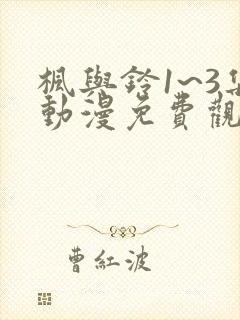 楓與鈴1~3集
動漫免費觀
曹紅波